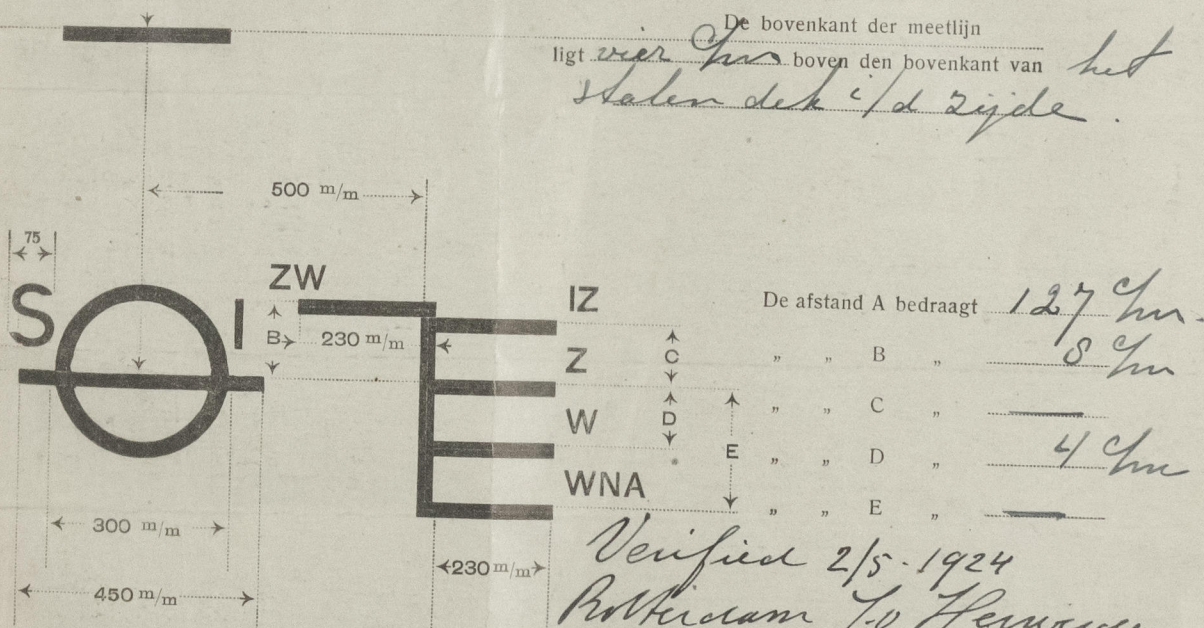 De bovenkant der meetlijn
ligt vier c/m boven den bovenkant van het
stalen dek i/d zijde.
500 m/m
75
S I
ZW
B
230 m/m
IZ
Z
W
WNA
C
D
E
De afstand A bedraagt 127 c/m.
„ „ B „ 8 c/m
„ „ C „ —
„ „ D „ 4 c/m
„ „ E „ —
300 m/m
450 m/m
230 m/m
Verified 2/5-1924
Rotterdam